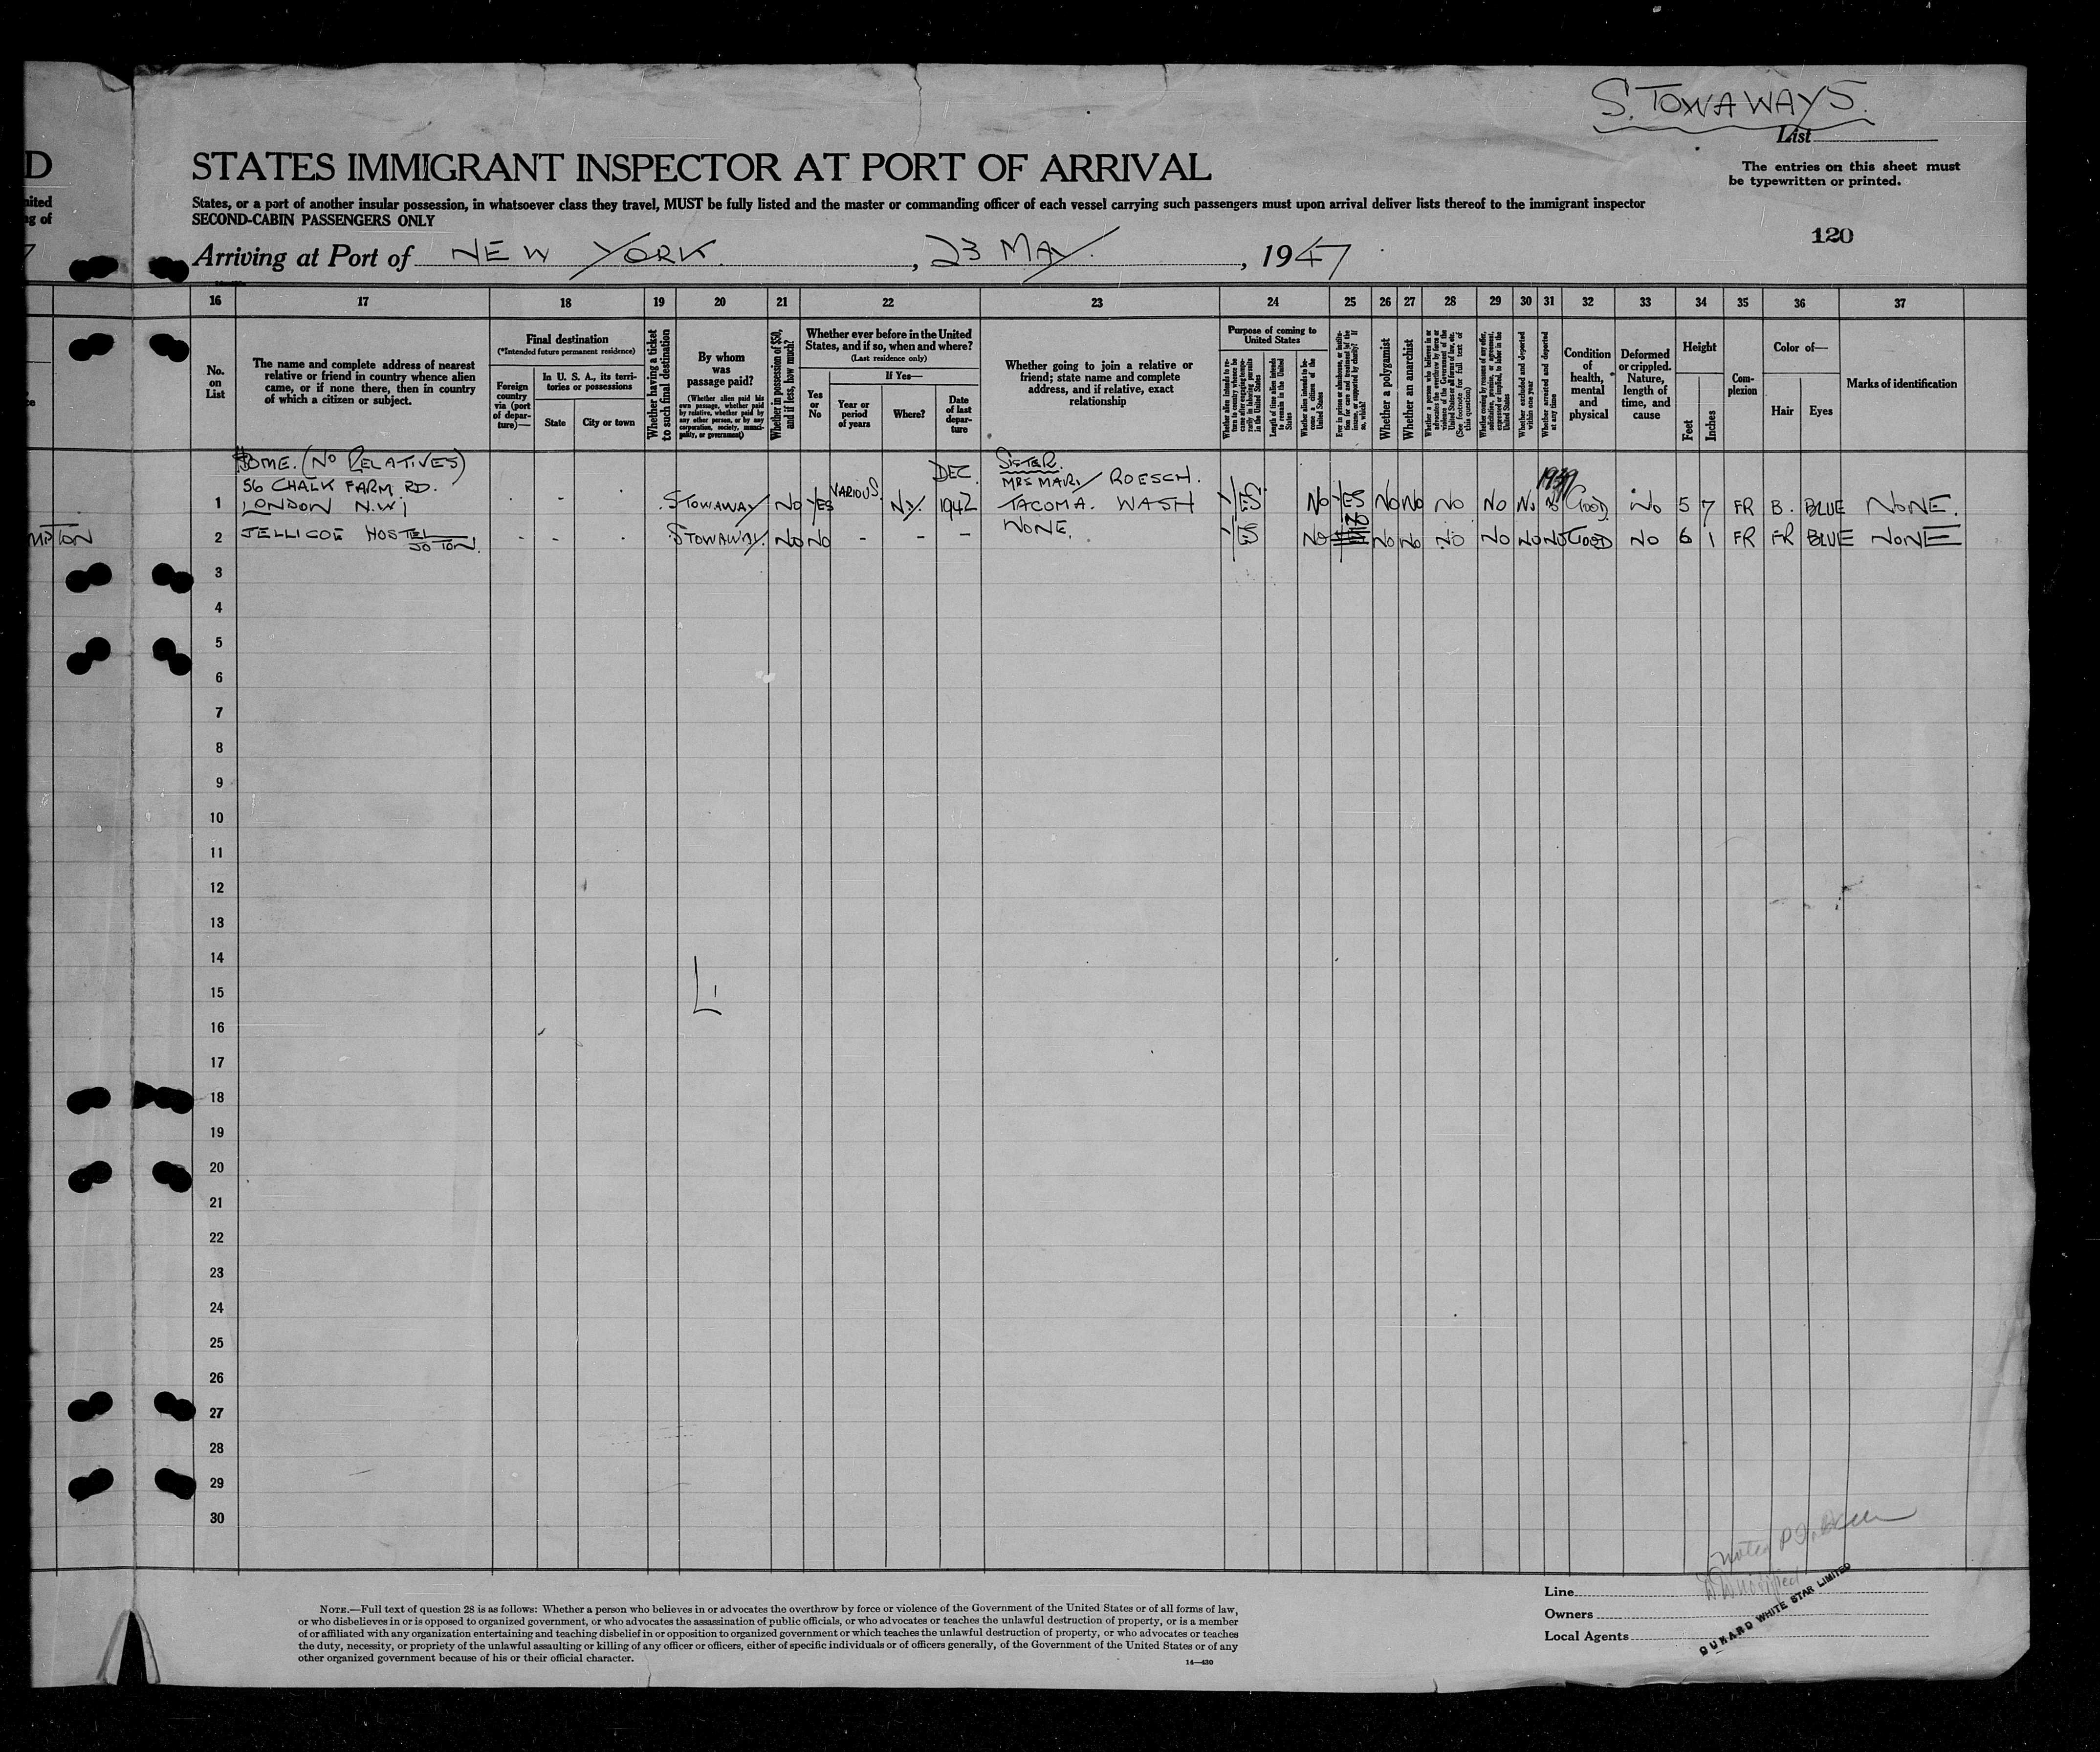 S. TOWAWAYS.
List
D
STATES IMMIGRANT INSPECTOR AT PORT OF ARRIVAL
The entries on this sheet must
be typewritten or printed.
nited
ng of
States, or a port of another insular possession, in whatsoever class they travel, MUST be fully listed and the master or commanding officer of each vessel carrying such passengers must upon arrival deliver lists thereof to the immigrant inspector
SECOND-CABIN PASSENGERS ONLY
120
7
Arriving at Port of NEW YORK., 23 MAY., 1947
16 17 18 19 20 21 22 23 24 25 26 27 28 29 30 31 32 33 34 35 36 37
No.
on
List
The name and complete address of nearest
relative or friend in country whence alien
came, or if none there, then in country
of which a citizen or subject.
Final destination
(*Intended future permanent residence)
Foreign
country
via (port
of depar-
ture)—
In U. S. A., its terri-
tories or possessions
State
City or town
Whether having a ticket
to such final destination
By whom
was
passage paid?
(Whether alien paid his
own passage, whether paid
by relative, whether paid by
any other person, or by any
corporation, society, munici-
pality, or government)
Whether in possession of $50,
and if less, how much?
Whether ever before in the United
States, and if so, when and where?
(Last residence only)
Yes
or
No
If Yes—
Year or
period
of years
Where?
Date
of last
depar-
ture
Whether going to join a relative or
friend; state name and complete
address, and if relative, exact
relationship
Purpose of coming to
United States
Whether alien intends to re-
turn to country whence he
came after engaging tempo-
rarily in laboring pursuits
in the United States
Length of time alien intends
to remain in the United
States
Whether alien intends to be-
come a citizen of the
United States
Ever in prison or almshouse, or institu-
tion for care and treatment of the
insane, or supported by charity? If
so, which?
Whether a polygamist
Whether an anarchist
Whether a person who believes in or
advocates the overthrow by force or
violence of the Government of the
United States or all forms of law, etc.
(See footnote for full text of
this question)
Whether coming by reasons of any offer,
solicitation, promise, or agreement,
expressed or implied, to labor in the
United States
Whether excluded and deported
within one year
Whether arrested and deported
at any time
Condition
of
health,
mental
and
physical
Deformed
or crippled.
Nature,
length of
time, and
cause
Height
Feet
Inches
Com-
plexion
Color of—
Hair
Eyes
Marks of identification
HOME. (NO RELATIVES)
56 CHALK FARM RD.
1 LONDON N.W1 - STOWAWAY NO YES VARIOUS. N.Y. DEC. 1942
SISTER.
MRS MARY ROESCH.
TACOMA. WASH YES NO YES NO NO NO NO NO 1939 GOOD. NO 5 7 FR B. BLUE NONE.
MPTON
2 JELLICOE HOSTEL
SO TON. - - - STOWAWAY. NO NO - - - NONE. YES NO NO NO NO NO NO NO NO GOOD NO 6 1 FR FR BLUE NONE
3
4
5
6
7
8
9
10
11
12
13
14
15
16
17
18
19
20
21
22
23
24
25
26
27
28
29
30
NOTE.—Full text of question 28 is as follows: Whether a person who believes in or advocates the overthrow by force or violence of the Government of the United States or of all forms of law,
or who disbelieves in or is opposed to organized government, or who advocates the assassination of public officials, or who advocates or teaches the unlawful destruction of property, or is a member
of or affiliated with any organization entertaining and teaching disbelief in or opposition to organized government or which teaches the unlawful destruction of property, or who advocates or teaches
the duty, necessity, or propriety of the unlawful assaulting or killing of any officer or officers, either of specific individuals or of officers generally, of the Government of the United States or of any
other organized government because of his or their official character.
14—430
Line
Owners
Local Agents
CUNARD WHITE STAR LIMITED